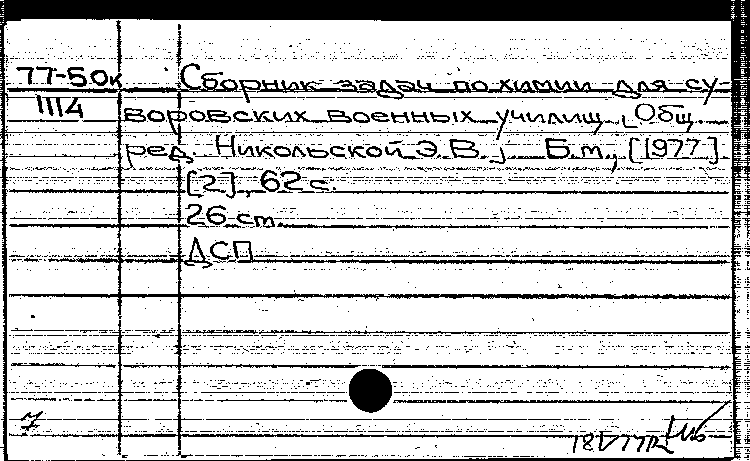 77-50к Сборник задач по химии для су-
1114 воровских военных училищ. [Общ.
ред. Никольской Э.В.] Б.м., [1977].
[2], 62 с.
26 см.
ДСП
7
18 V 77г.